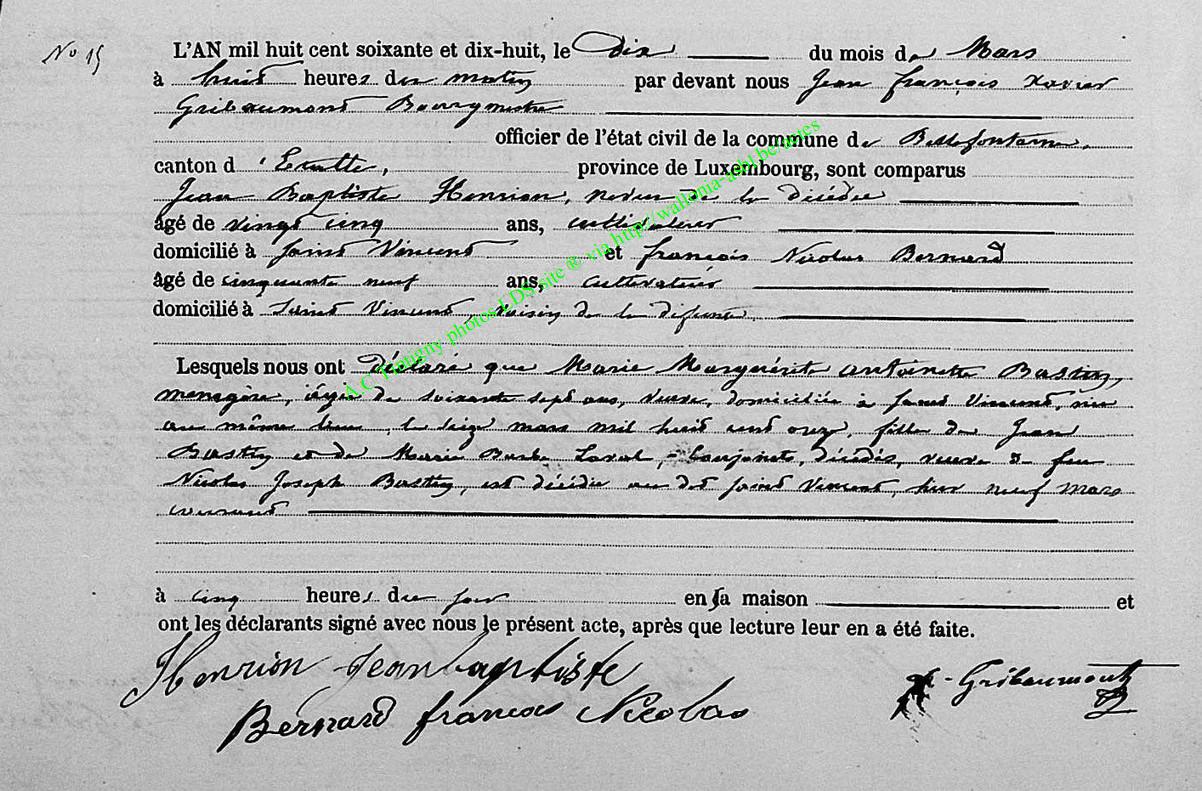 No 15
L'AN mil huit cent soixante et dix-huit, le Dix du mois de Mars
à huit heures du matin par devant nous Jean françois xavier
Gribaumont Bourgmestre
officier de l'état civil de la commune de Bellefontaine,
canton d'Etalle, province de Luxembourg, sont comparus
Jean Baptiste Henrion, neveu de la décédée
âgé de vingt cinq ans, cultivateur
domicilié à Saint Vincent et françois Nicolas Bernard
âgé de cinquante neuf ans, cultivateur
domicilié à Saint Vincent, voisin de la défunte,
Lesquels nous ont déclaré que Marie Marguérite antoinette Bastin,
menagère, âgée de soixante sept ans, veuve, domiciliée à Saint Vincent, née
au même lieu, le seize mars mil huit cent onze, fille de Jean
Bastin et de Marie Barbe Laval, Conjoints, décédés, veuve de feu
Nicolas Joseph Bastin, est décédée au dit Saint Vincent, hier neuf mars
courant
à cinq heures du soir en sa maison et
ont les déclarants signé avec nous le présent acte, après que lecture leur en a été faite.
Henrion Jean baptiste
Bernard francois Nicolas
Gribaumont
A.C. Tintigny photos LDS site ® via http://wallonia-asbl.be/notes